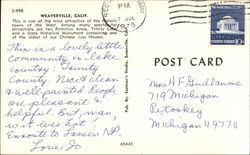 S-998
WEAVERVILLE, CALIF.
This is one of the most attractive of the
towns of the West. Among many
attractions are two Primitive Areas, Trinity
and a State Historical Monument containing one
of the oldest of our Chinese Joss Houses.
PM
JUL
This is a lovely little
community in lake
country. Trinity
County. Nice & clean
& well painted. People
are pleasant &
helpful. But, man,
so it is hot!
Enroute to Lassen N.P.
Love, Jo
POST CARD
Mrs H F Guillaume
719 Michigan
Petoskey
Michigan 49770
65445